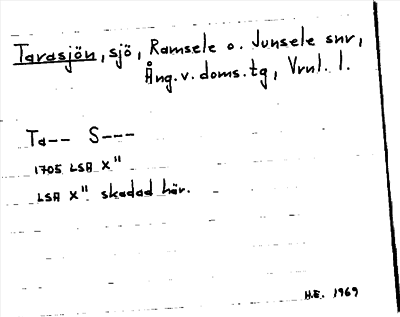 Tarasjön, sjö, Ramsele o. Junsele snr,
Ång.v. doms.tg, Vrnl. l.
Ta-- S---
1705 LSA X"
LSA X" skadad här.
H.E. 1969